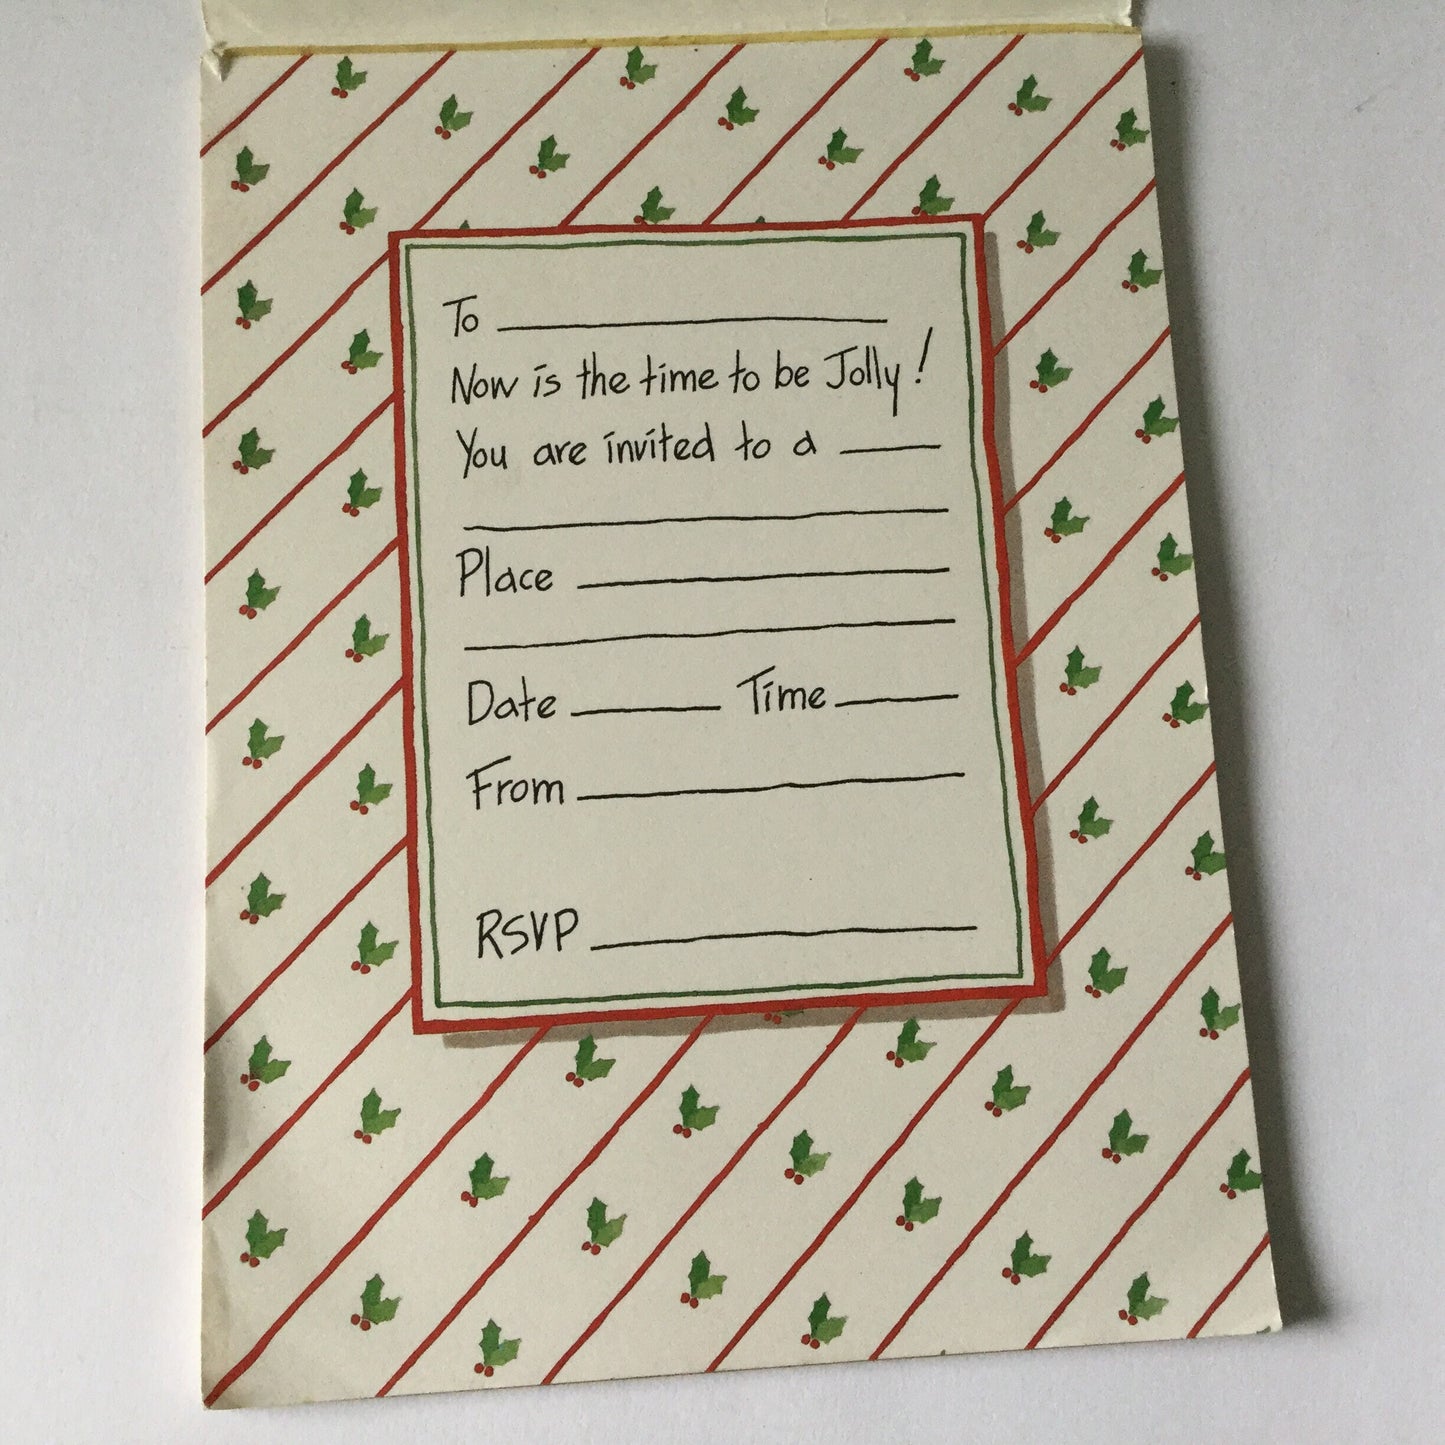 To
Now is the time to be Jolly!
You are invited to a
Place
Date Time
From
RSVP